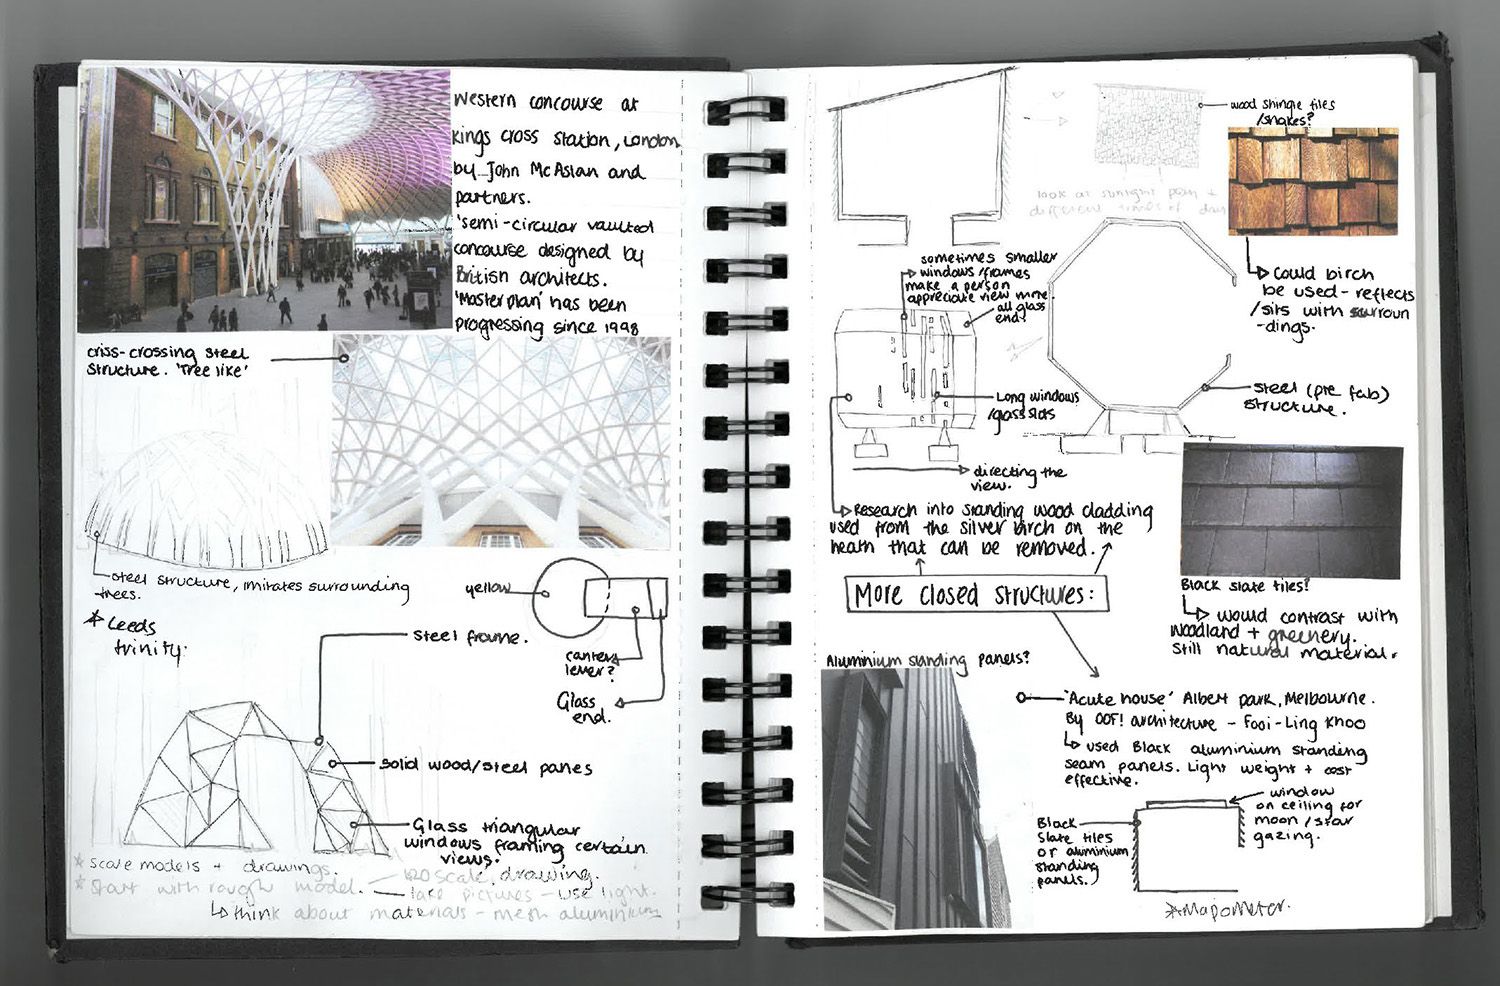 Western concourse at
Kings cross station, London
by John McAslan and
partners.
'semi-circular vaulted
concourse designed by
British architects.
'Master plan' has been
progressing since 1998
criss-crossing steel
structure. 'Tree like'
steel structure, imitates surrounding
trees.
* Leeds
trinity.
yellow
canter
lever?
Glass
end.
Steel frame.
Solid wood/steel panes
Glass triangular
windows framing certain
views.
* scale models + drawings.
1:20 scale, drawing.
* Start with rough model. — take pictures - use light.
↳ think about materials - mesh aluminium
wood shingle tiles
/shakes?
look at sunlight path +
different times of day
Could birch
be used - reflects
/sits with surroun
-dings.
sometimes smaller
windows/frames
make a person
appreciate view more.
all glass
end?
Long windows
/glass slots
Steel (pre fab)
structure.
directing the
view.
Research into standing wood cladding
used from the silver birch on the
heath that can be removed.
More closed structures:
Black slate tiles?
would contrast with
woodland + greenery.
Still natural material.
Aluminium standing panels?
'Acute house' Albert park, Melbourne.
By OOF! architecture - Fooi-Ling Khoo
↳ used Black aluminium standing
seam panels. Light weight + cost
effective.
window
on ceiling for
moon/star
gazing.
Black
slate tiles
or aluminium
standing
panels.
*Mapometer.